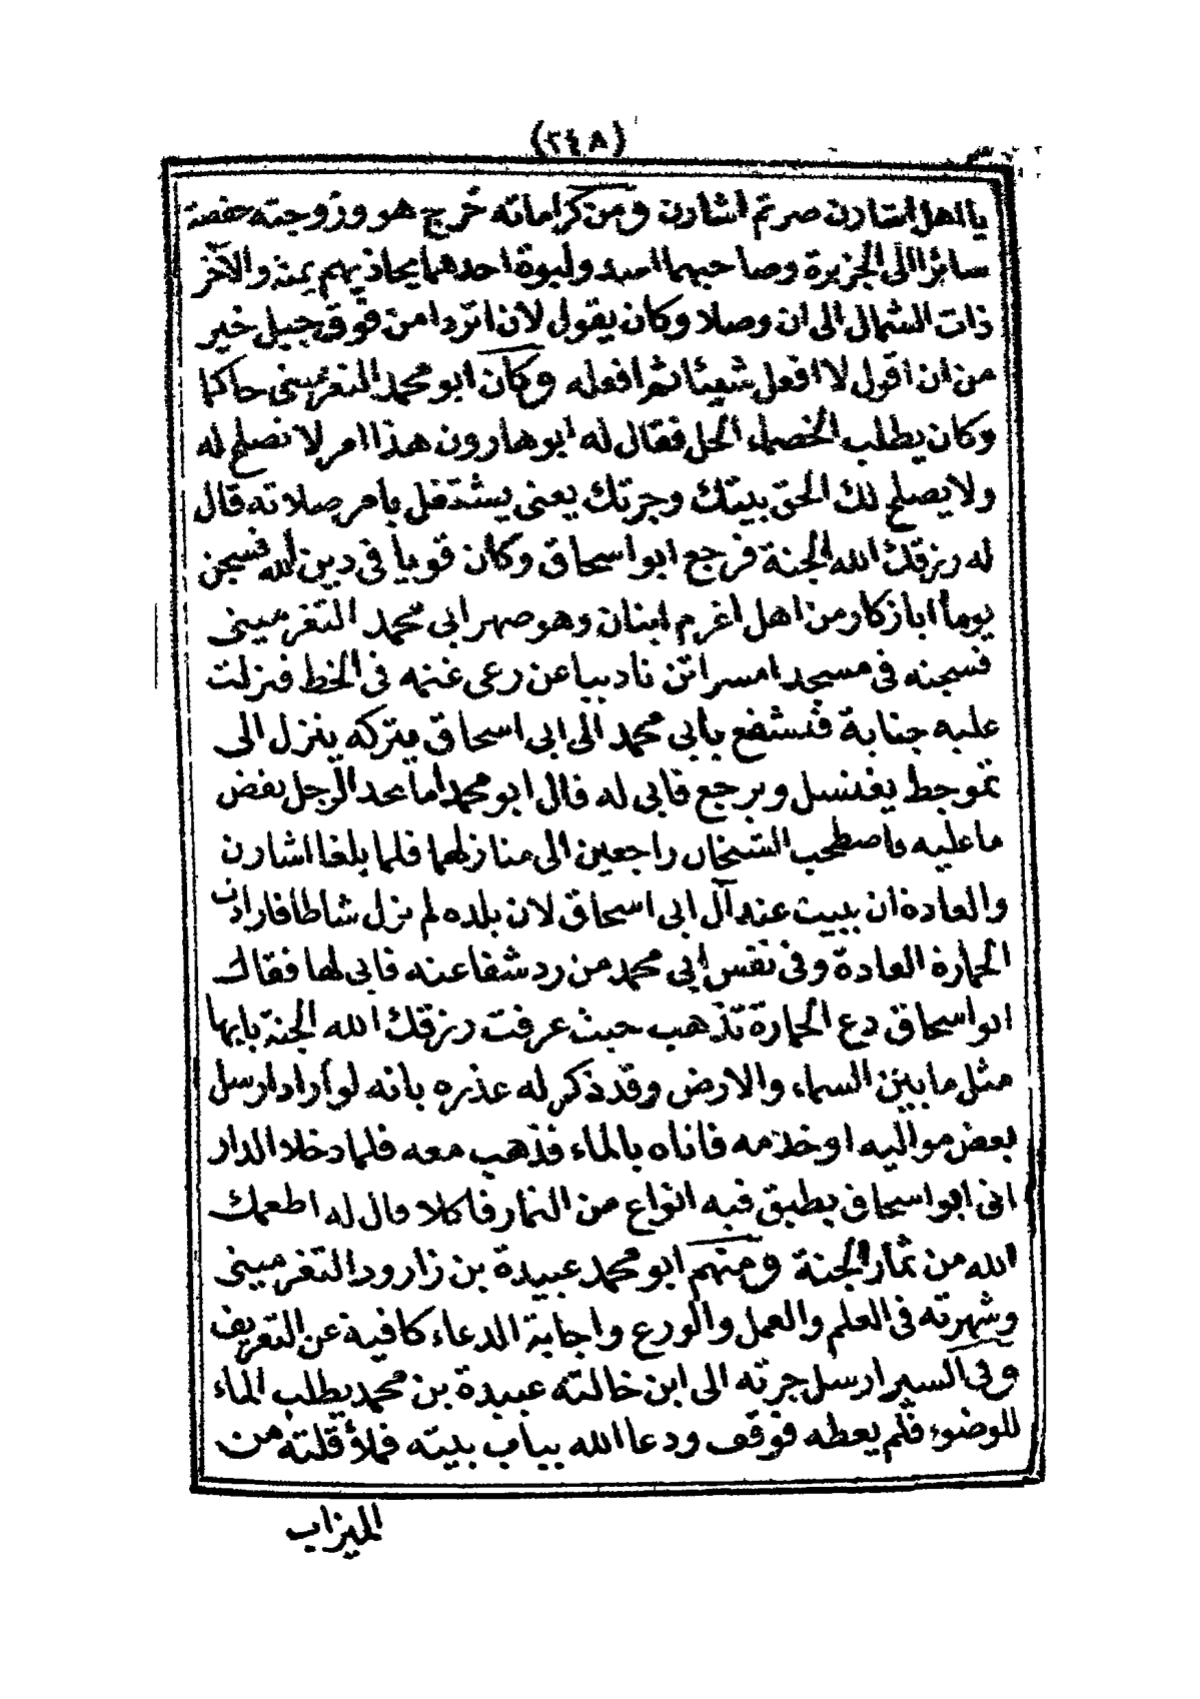 (٢٤٨)
يااهل اشارن صرتم اشارن ومن كراماته خرج هو وزوجته حفصة
سائرا الى الجزيرة وصاحبهما اسد ولبوة احدهما يحاذيهم يمنة والآخر
ذات الشمال الى ان وصلا وكان يقول لان اتردا من فوق جبل خير
من ان اقول لا افعل شيئا ثم افعله وكان ابو محمد التغرميني حاكما
وكان يطلب الخصماء الحل فقال له ابو هارون هذا امر لا نصلح له
ولا يصلح لك الحق بيتك وجرتك يعنى يشتغل بامر صلاته قال
له رزقك الله الجنة فرجع ابو اسحاق وكان قويا فى دين الله فسجن
يوما ابازكار من اهل اغرم اينان وهو صهر ابى محمد التغرميني
فسجنه فى مسجد امسراتن تاديبا عن رعى غنمه فى الخط فنزلت
عليه جنابة فتشفع بابى محمد الى ابى اسحاق يتركه ينزل الى
تموجط يغتسل ويرجع فابى له قال ابو محمد اما بعد الرجل يقض
ما عليه فاصطحب الشيخان راجعين الى منازلهما فلما بلغا اشارن
والعادة ان يبيت عند آل ابى اسحاق لان بلده لم يزل شاطا فارادت
الحمارة العادة وفى نفس ابى محمد من رد شفاعته فابى لها فقال
ابو اسحاق دع الحمارة تذهب حيث عرفت رزقك الله الجنة بابها
مثل ما بين السماء والارض وقد ذكر له عذره بانه لو اراد ارسل
بعض مواليه او خدمه فاتاه بالماء فذهب معه فلما دخلا الدار
اتى ابو اسحاق بطبق فيه انواع من الثمار فاكلا قال له اطعمك
الله من ثمار الجنة ومنهم ابو محمد عبيدة بن زارود التغرميني
وشهرته فى العلم والعمل والورع واجابة الدعاء كافية عن التعريف
وفى السير ارسل جرته الى ابن خالته عبيدة بن محمد يطلب الماء
للوضوء فلم يعطه فوقف ودعا الله بباب بيته فملأ قلته من
الميزاب